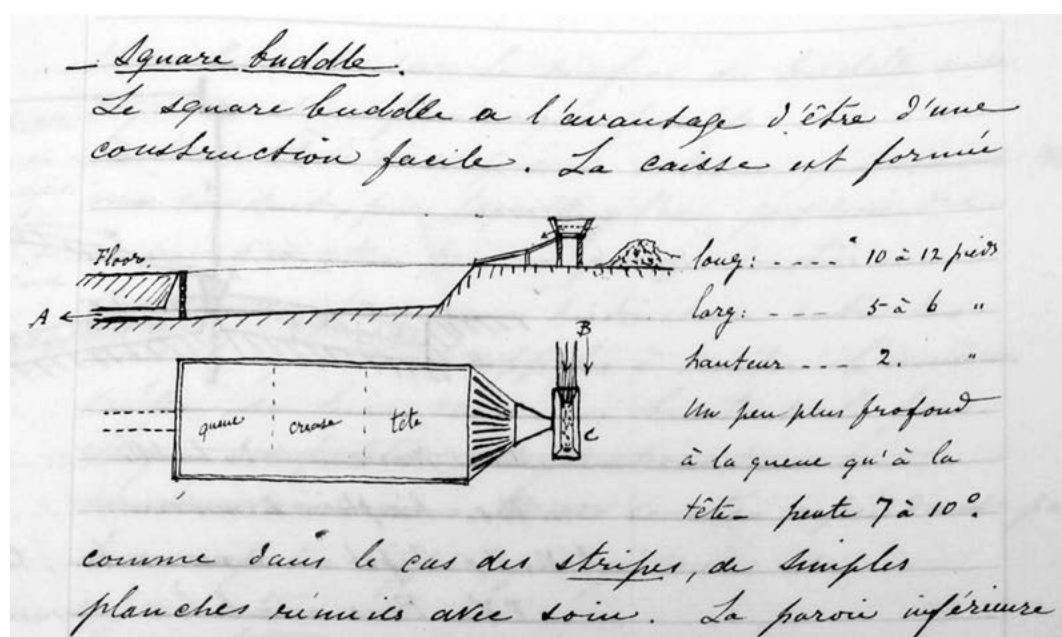 Square buddle.
Le square buddle a l'avantage d'être d'une
construction facile. La caisse est formée
Floor.
A
long: - - - - 10 à 12 pieds
larg: - - - 5 à 6 "
hauteur - - - 2. "
Un peu plus profond
à la queue qu'à la
tête - pente 7 à 10°.
B
C
queue crease tête
comme dans le cas des stripes, de simples
planches réunies avec soin. La paroi inférieure